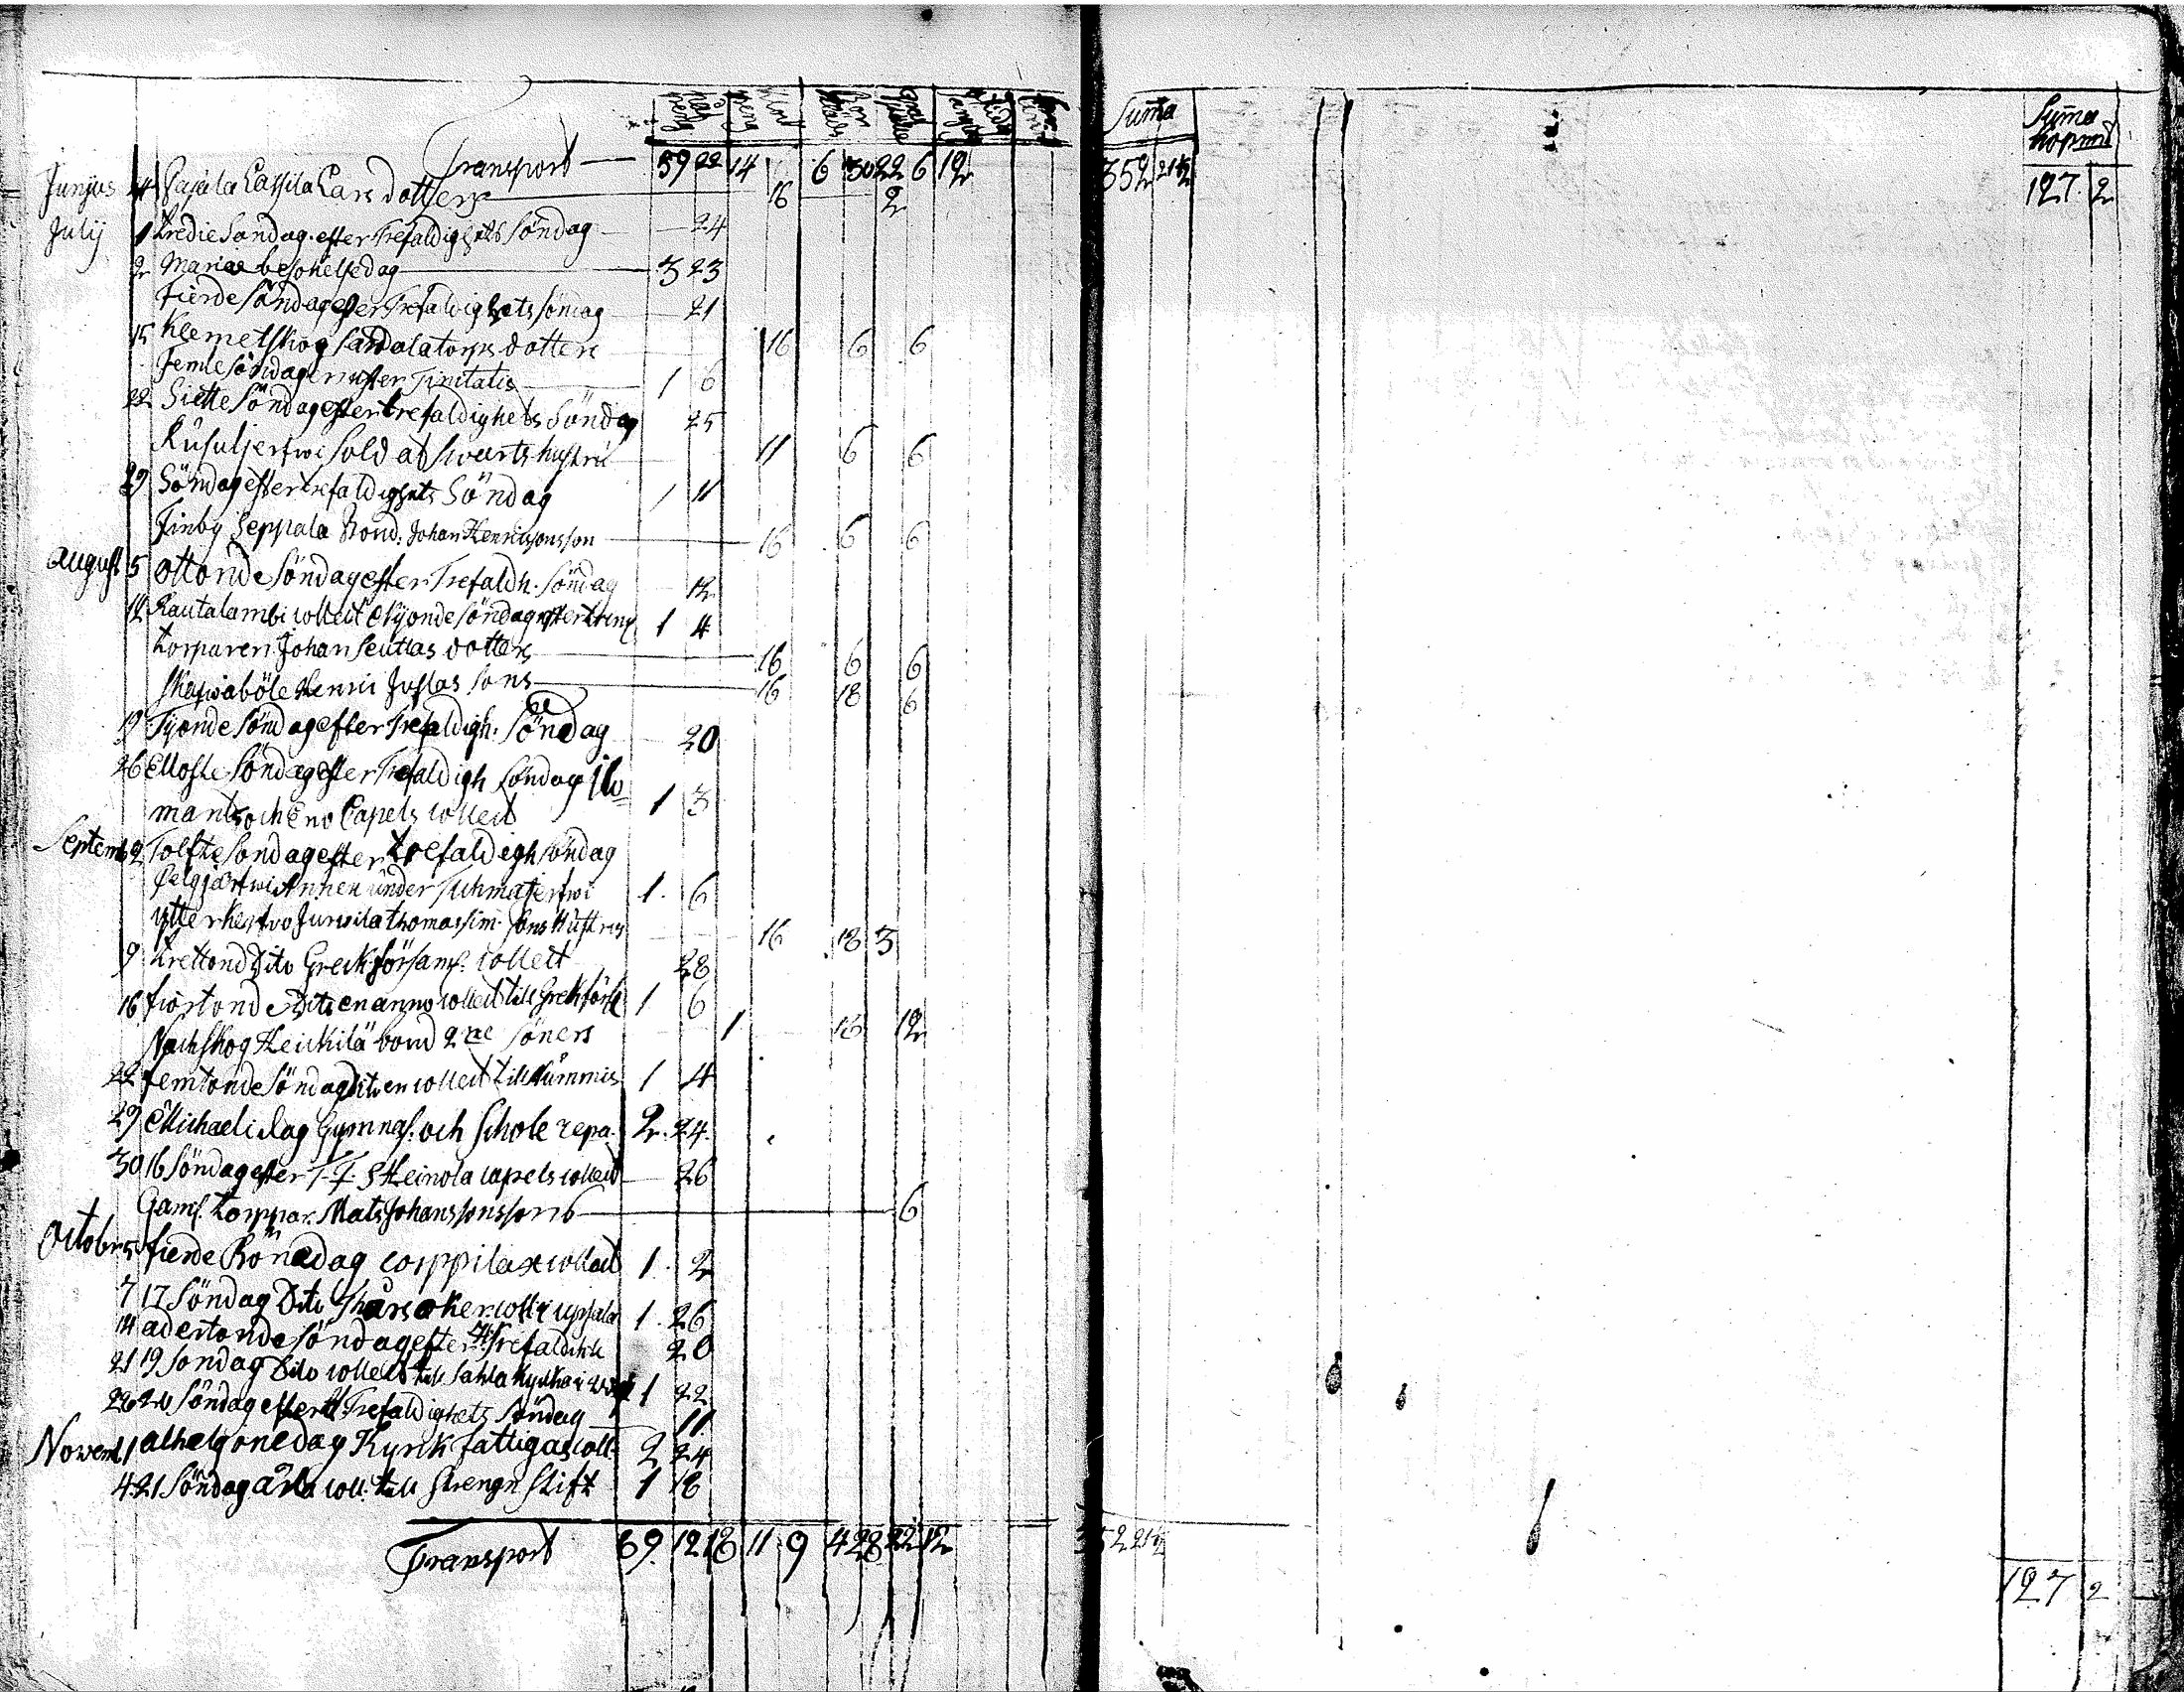 Håf peng Klock peng Bår Kläde Graf ställe
Suma
Suma hopmd
Transport 59 22 14 6 30 22 6 12 352 21½ 127. 2
Junjus 24 Pajula Cassila Lars dotters 16 2
July 1 tredie Sandag efter Trefaldighets Söndag 24
2 Mariae besökelsedag 3 23
Fierde Söndag efter Trefaldighets Söndag 21
15 Klemetskog torps dotters 16 6 6
Femte Söndagen efter Trinitatis 1 6
22 Siette Söndag efter trefaldighets Söndag 25
Rusuljerfwi Soldat Swarts hustru 11 6 6
29 Söndag efter trefaldighets Söndag 1 11
Finby Seppala Bond. Johan Henricssons son 16 6 6
August 5 ottonde Söndag efter Trefaldh. Söndag 12
12 Rautalambi collect Nijonde Söndag efter 1 4
torparen Johan dotters 16 6 6
böle Henric Justas sons 16 18 6
19 Tijonde Söndag efter Trefaldigh. Söndag 20
26 Ellofte Söndag efter Trefaldigh Söndag Ilo=
mants och Eno Capels collect 1 3
Septemb 2 Tolfte Sondag efter trefaldigh söndag
under Tuhmajerfwi 1. 6
ytterkerfvo Juswila Thomas Sim. Sons Hustrus 16 18 3
9 trettond Dito Grek församl. collect 28
16 fiortonde Dito en anno collect till Grek förs 1 6
Nackskog Heickilä bond 2 ne Söners 1 18 12
22 femtonde Söndag Dito en collect till Nummis 1 4
29 Michaelidag Gymnas. och Schole repa. 2. 24.
30 16 Söndag efter T-f. S Heinola capels collect 26
Gaml. torppar Mats Johanssons sons 6
Octobr 5 fierde Bönedag coppilax collect 1. 2
7 17 Söndag Dito Thårsåker coll i upsala 1. 26
14 adertonde Söndag efter Trefaldh 20
21 19 Sondag Dito collect till Sahla Kyrka 1 22
28 20 Söndag efter Trefaldighets Söndag 11
Novem 1 alhelgonedag Kyrk fattigas coll. 2 24
4 21 Söndag coll. till Strengn Stift 1 18
Transport 89. 12 18 11 9 4 28 22 12 352 21½ 127 2